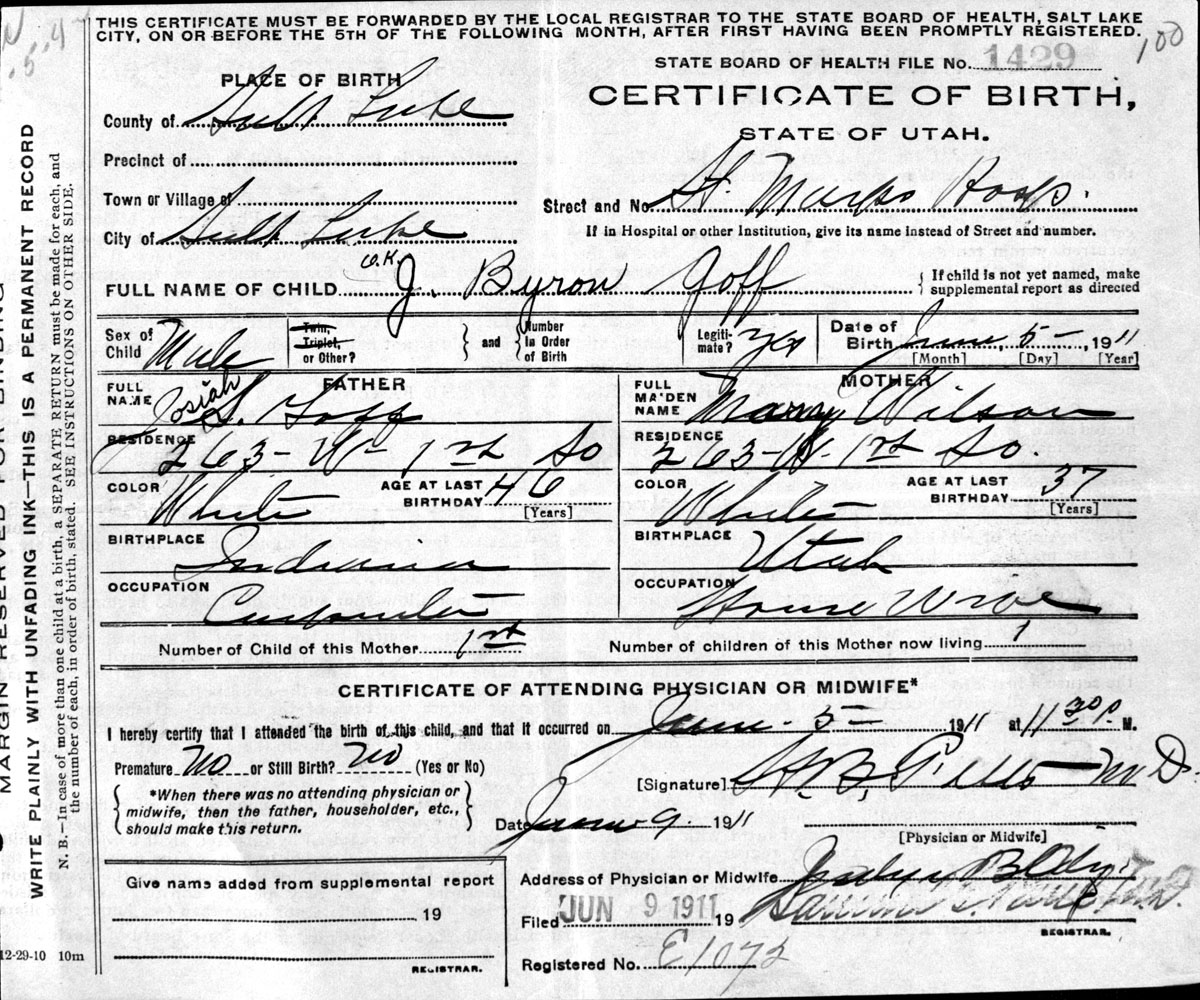 THIS CERTIFICATE MUST BE FORWARDED BY THE LOCAL REGISTRAR TO THE STATE BOARD OF HEALTH, SALT LAKE
CITY, ON OR BEFORE THE 5TH OF THE FOLLOWING MONTH, AFTER FIRST HAVING BEEN PROMPTLY REGISTERED.
100
STATE BOARD OF HEALTH FILE No. 1429
CERTIFICATE OF BIRTH,
STATE OF UTAH.
PLACE OF BIRTH
County of Salt Lake
Precinct of
Town or Village of
City of Salt Lake
Street and No. St. Marks Hosp.
If in Hospital or other Institution, give its name instead of Street and number.
O.K.
FULL NAME OF CHILD J. Byron Goff
{ If child is not yet named, make
supplemental report as directed
Sex of Child Male
Twin, Triplet, or Other?
and
Number in Order of Birth
Legiti-mate? Yes
Date of Birth June 5 - 1911
[Month] [Day] [Year]
FATHER
FULL NAME Josiah S. Goff
RESIDENCE 263 - W - 1st So
COLOR White
AGE AT LAST BIRTHDAY 46 [Years]
BIRTHPLACE Indiana
OCCUPATION Carpenter
MOTHER
FULL MAIDEN NAME Mary Wilson
RESIDENCE 263 - W. 1st So.
COLOR White
AGE AT LAST BIRTHDAY 37 [Years]
BIRTHPLACE Utah
OCCUPATION House Wife
Number of Child of this Mother 1st
Number of children of this Mother now living 1
CERTIFICATE OF ATTENDING PHYSICIAN OR MIDWIFE*
I hereby certify that I attended the birth of this child, and that it occurred on June - 5 - 1911 at 11 30 P. M.
Premature No or Still Birth? No (Yes or No)
*When there was no attending physician or
midwife, then the father, householder, etc.,
should make this return.
[Signature] M.D.
Date June 9. 1911
[Physician or Midwife]
Address of Physician or Midwife
Filed JUN 9 1911 19
REGISTRAR.
Registered No. E1072
Give name added from supplemental report
19
REGISTRAR.
MARGIN RESERVED FOR BINDING
WRITE PLAINLY WITH UNFADING INK—THIS IS A PERMANENT RECORD
N. B.—In case of more than one child at a birth, a SEPARATE RETURN must be made for each, and
the number of each, in order of birth, stated. SEE INSTRUCTIONS ON OTHER SIDE.
12-29-10 10m